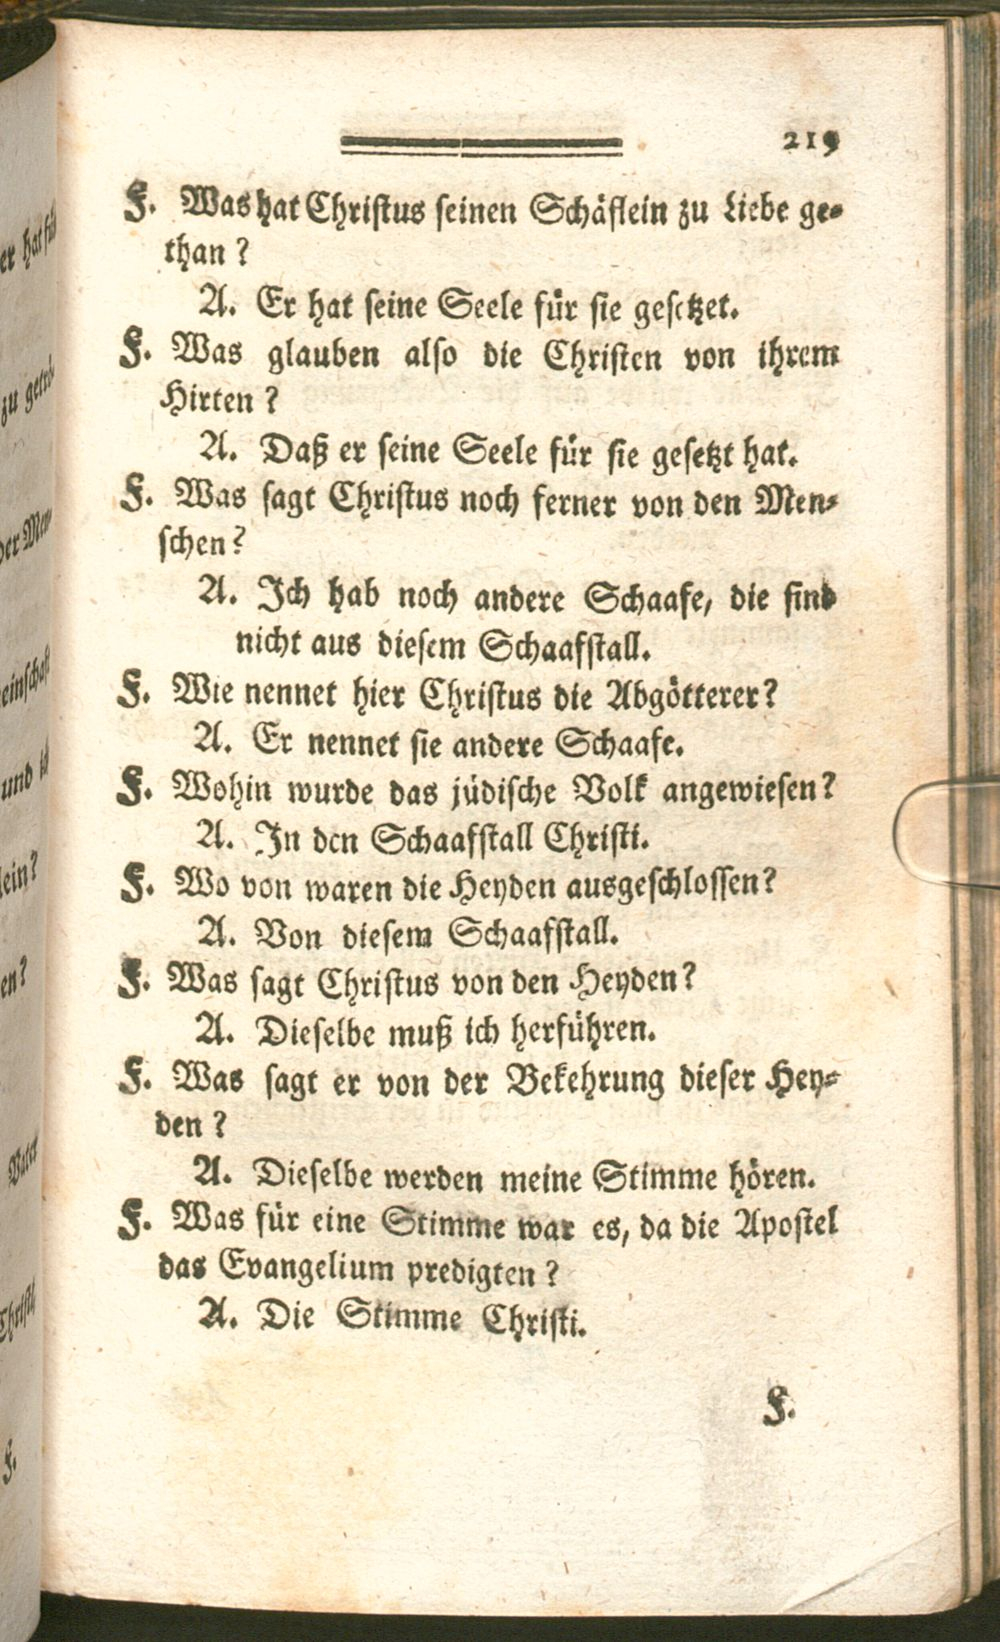 219
F. Was hat Christus seinen Schäflein zu Liebe ge-
than?
A. Er hat seine Seele für sie gesetzet.
F. Was glauben also die Christen von ihrem
Hirten?
A. Daß er seine Seele für sie gesetzt hat.
F. Was sagt Christus noch ferner von den Men-
schen?
A. Ich hab noch andere Schaafe, die sind
nicht aus diesem Schaafstall.
F. Wie nennet hier Christus die Abgötterer?
A. Er nennet sie andere Schaafe.
F. Wohin wurde das jüdische Volk angewiesen?
A. In den Schaafstall Christi.
F. Wo von waren die Heyden ausgeschlossen?
A. Von diesem Schaafstall.
F. Was sagt Christus von den Heyden?
A. Dieselbe muß ich herführen.
F. Was sagt er von der Bekehrung dieser Hey-
den?
A. Dieselbe werden meine Stimme hören.
F. Was für eine Stimme war es, da die Apostel
das Evangelium predigten?
A. Die Stimme Christi.
F.